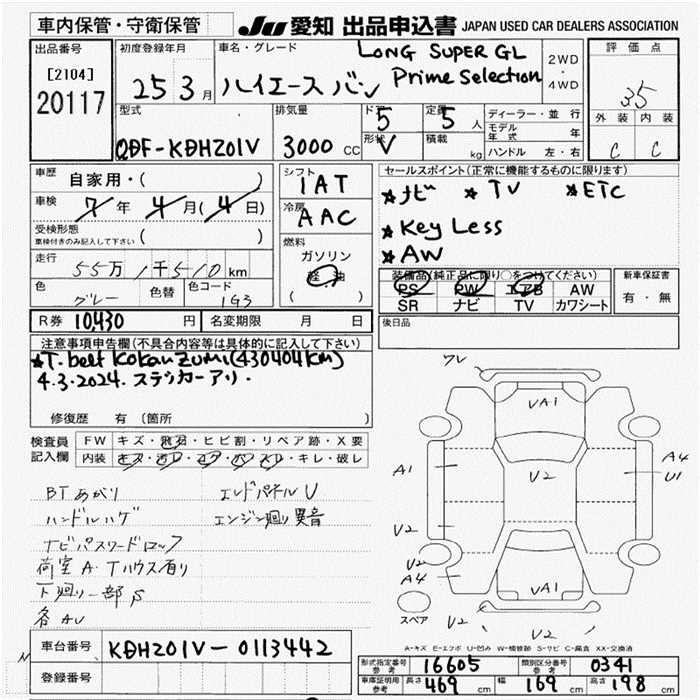 車内保管・守衛保管
JU 愛知 出品申込書 JAPAN USED CAR DEALERS ASSOCIATION
出品番号
[2104]
20117
初度登録年月
25 3月
車名・グレード
LONG SUPER GL
ハイエース バン Prime Selection
2WD
・
4WD
評価点
3.5
外装 内装
C C
型式
QDF-KDH201V
排気量
3000 CC
ドア
5
形状
V
定員
5 人
積載
kg
ディーラー・並行
モデル年式 年
ハンドル 左・右
車歴
自家用・( )
車検
7年 4月(4日)
受検形態
車検付きのみ記入して下さい ( )
走行
55万1千510km
色
グレー
色替
色コード
1G3
シフト
IAT
冷房
AAC
燃料
ガソリン
軽油
( )
セールスポイント(正常に機能するものに限ります)
★ナビ ★TV ★ETC
★Key Less
★AW
装備品(純正品に限り○をつけてください)
PS PW エアB AW
SR ナビ TV カワシート
新車保証書
有・無
R券 10,430 円
名変期限 月 日
後日品
注意事項申告欄(不具合内容等は具体的に記入して下さい)
★T.belt Kokanzumi(430404KM)
4.3.2024. ステッカーアリ.
修復歴 有 (箇所 )
検査員
記入欄
FW キズ・飛石・ヒビ割・リペア跡・X要
内装 キズ・汚レ・コゲ・穴・スレ・キレ・破レ
BTあがり エンドパネルU
ハンドルハゲ エンジン廻り異音
ナビパスワードロック
荷室A.Tハウス有り
下廻り一部S
各AU
フレ
VA1
A1
V2
A4
U1
V2
V2
A4
VA1
スペア
V2 V2
A-キズ E-エクボ U-凹み W-補修跡 S-サビ C-腐食 XX-交換済
車台番号 KDH201V-0113442
登録番号
形式指定番号 参考 16605
類別区分番号 参考 0341
車庫証明用 参考 長さ 469 cm 幅 169 cm 高さ 198 cm